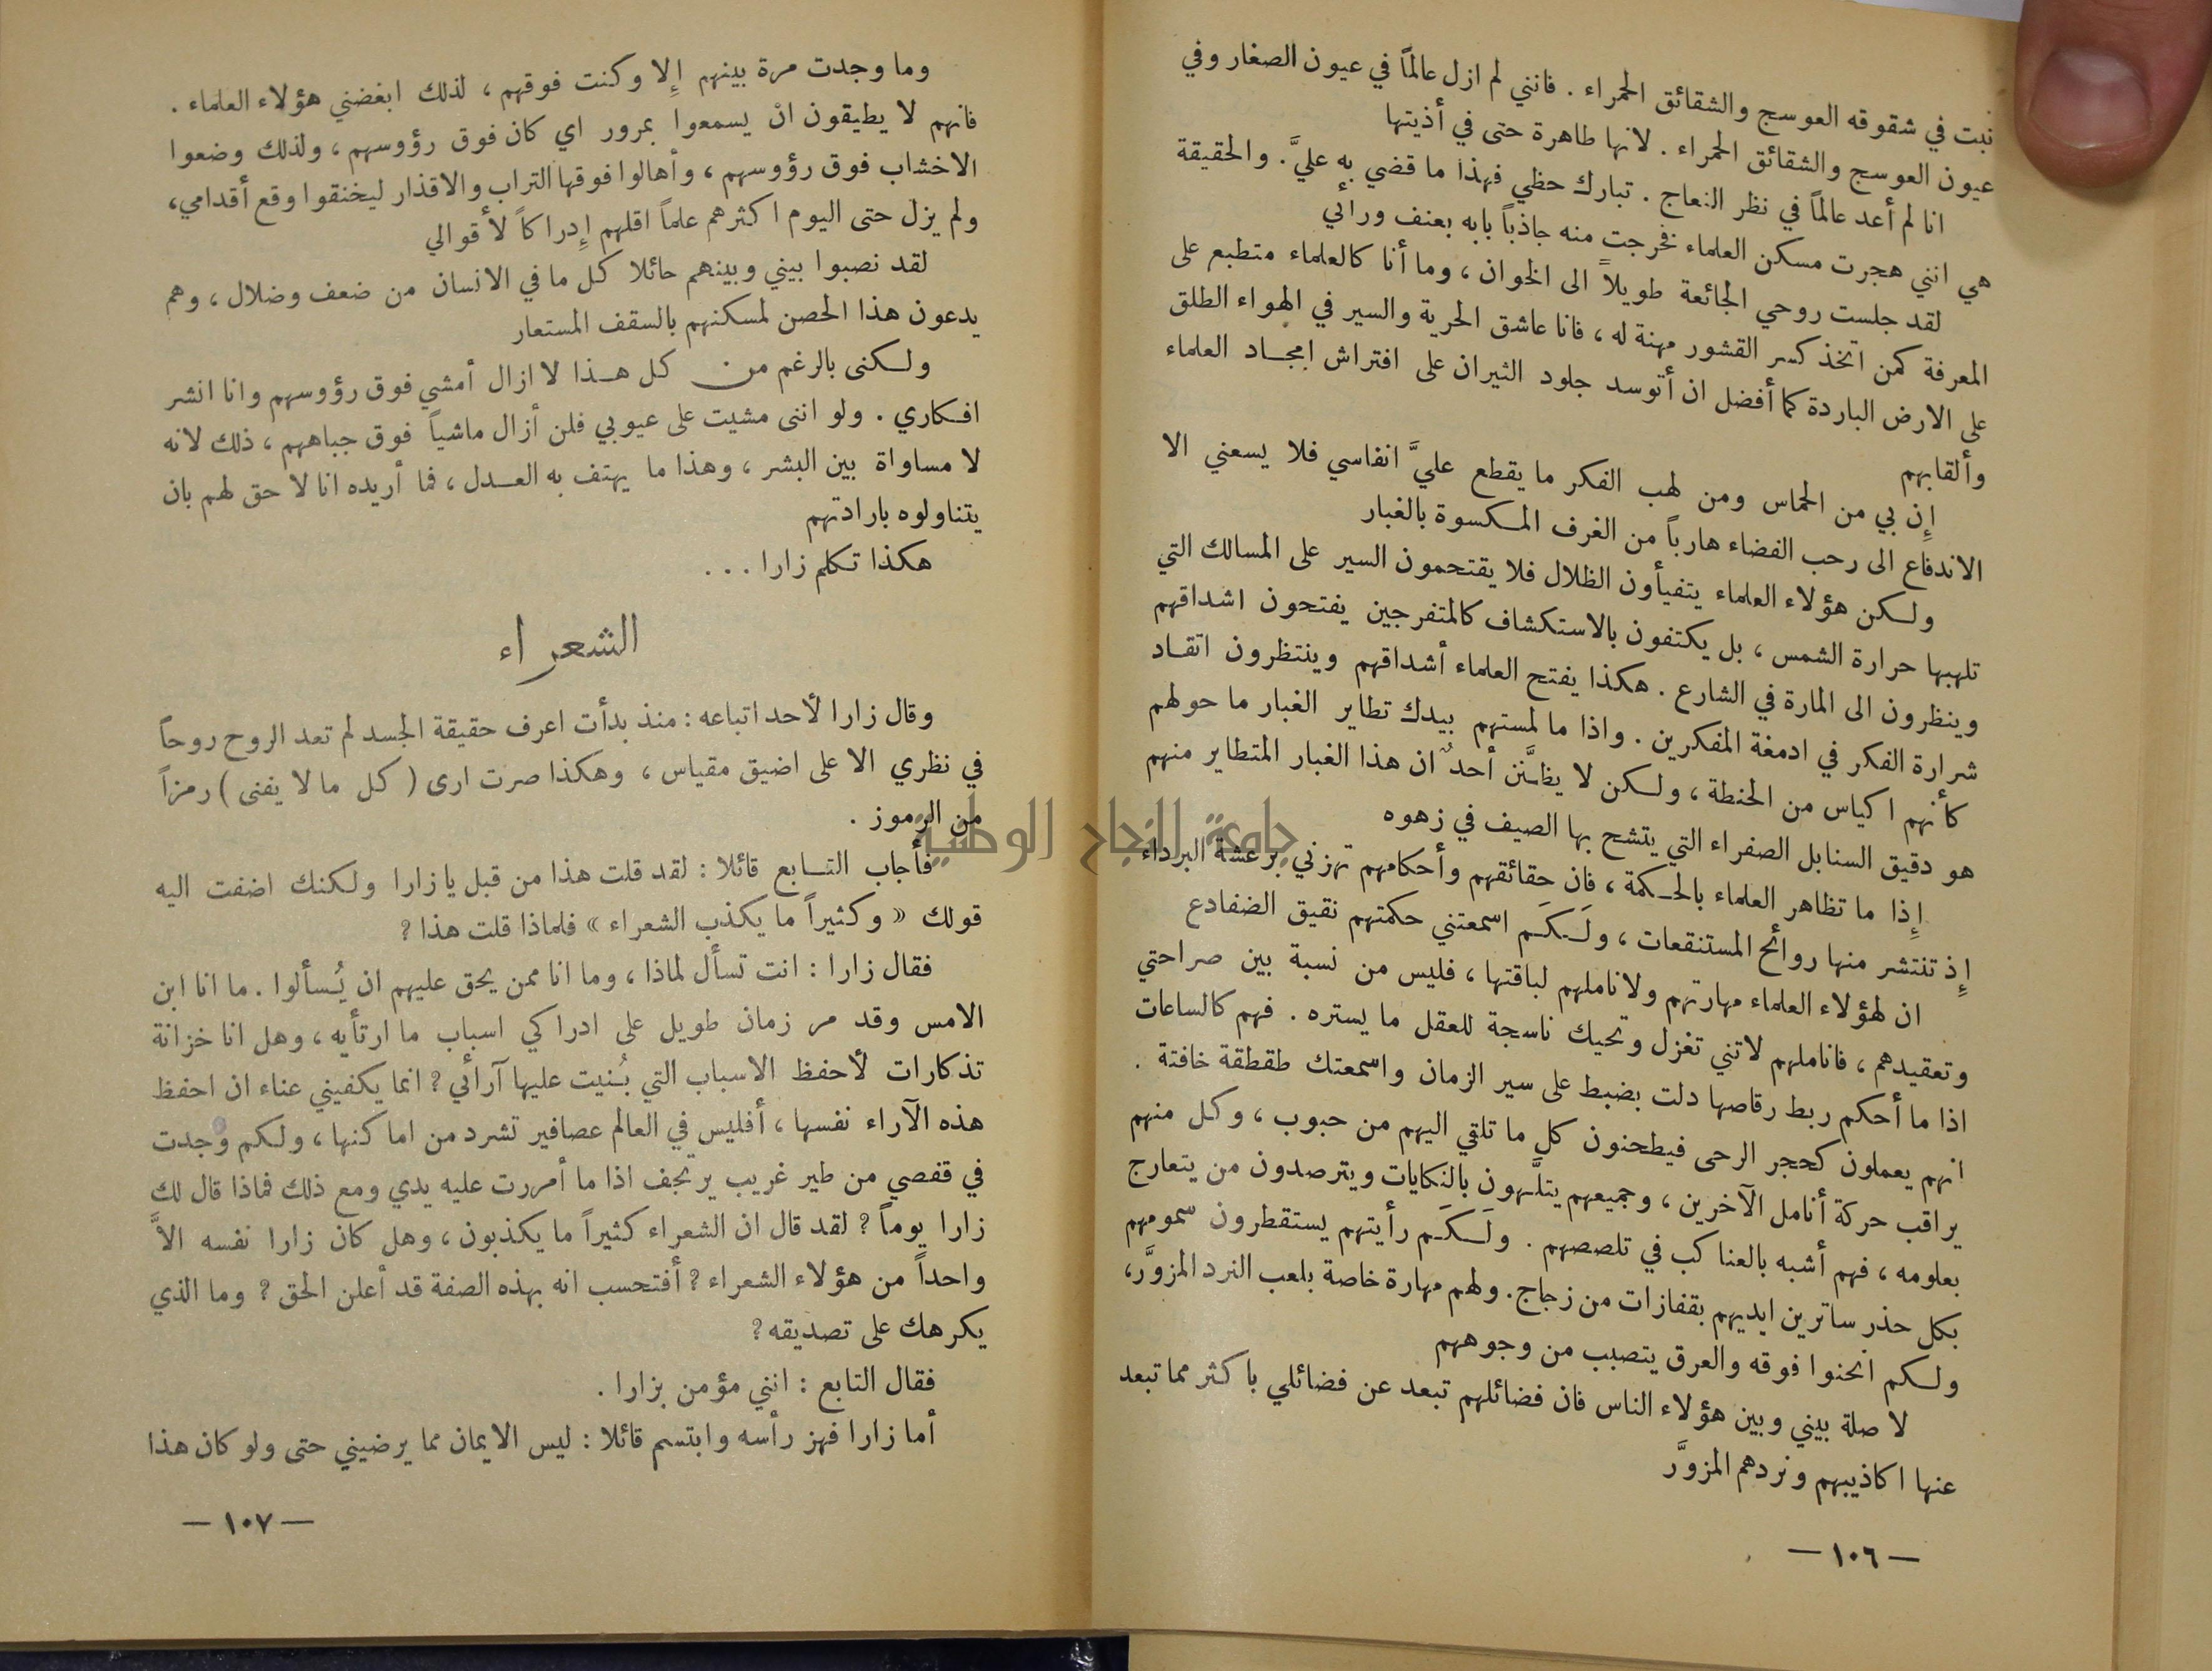 نبت في شقوقه العوسج والشقائق الحمراء . فانني لم ازل عالماً في عيون الصغار وفي
عيون العوسج والشقائق الحمراء . لانها طاهرة حتى في أذيتها
انا لم أعد عالماً في نظر النعاج . تبارك حظي فهذا ما قضي به عليَّ . والحقيقة
هي انني هجرت مسكن العلماء فخرجت منه جاذباً بابه بعنف ورائي
لقد جلست روحي الجائعة طويلاً الى الخوان ، وما أنا كالعلماء متطبع على
المعرفة كمن اتخذ كسر القشور مهنة له ، فانا عاشق الحرية والسير في الهواء الطلق
على الارض الباردة كما أفضل ان أتوسد جلود الثيران على افتراش امجاد العلماء
وألقابهم
إِن بي من الحماس ومن لهب الفكر ما يقطع عليَّ انفاسي فلا يسعني الا
الاندفاع الى رحب الفضاء هارباً من الغرف المكسوة بالغبار
ولكن هؤلاء العلماء يتفيأون الظلال فلا يقتحمون السير على المسالك التي
تلهبها حرارة الشمس ، بل يكتفون بالاستكشاف كالمتفرجين يفتحون اشداقهم
وينظرون الى المارة في الشارع . هكذا يفتح العلماء أشداقهم وينتظرون اتقاد
شرارة الفكر في ادمغة المفكرين . واذا ما لمستهم بيدك تطاير الغبار ما حولهم
كأنهم اكياس من الحنطة ، ولكن لا يظنَّن أحدٌ ان هذا الغبار المتطاير منهم
هو دقيق السنابل الصفراء التي يتشح بها الصيف في زهوه
إِذا ما تظاهر العلماء بالحكمة ، فان حقائقهم وأحكامهم تهزني برعشة البرداء
إِذ تنتشر منها روائح المستنقعات ، ولَكَم اسمعتني حكمتهم نقيق الضفادع
ان لهؤلاء العلماء مهارتهم ولاناملهم لباقتها ، فليس من نسبة بين صراحتي
وتعقيدهم ، فاناملهم لاتني تغزل وتحيك ناسجة للعقل ما يستره . فهم كالساعات
اذا ما أحكم ربط رقاصها دلت بضبط على سير الزمان واسمعتك طقطقة خافتة .
انهم يعملون كحجر الرحى فيطحنون كل ما تلقي اليهم من حبوب ، وكل منهم
يراقب حركة أنامل الآخرين ، وجميعهم يتلَّهون بالنكايات ويترصدون من يتعارج
بعلومه ، فهم أشبه بالعناكب في تلصصهم . ولَكَم رأيتهم يستقطرون سمومهم
بكل حذر ساترين ايديهم بقفازات من زجاج. ولهم مهارة خاصة بلعب النرد المزوَّر،
ولكم انحنوا فوقه والعرق يتصبب من وجوههم
لا صلة بيني وبين هؤلاء الناس فان فضائلهم تبعد عن فضائلي باكثر مما تبعد
عنها اكاذيبهم ونردهم المزوَّر
— ١٠٦ —
وما وجدت مرة بينهم إِلا وكنت فوقهم ، لذلك ابغضني هؤلاء العلماء .
فانهم لا يطيقون ان يسمعوا بمرور اي كان فوق رؤوسهم ، ولذلك وضعوا
الاخشاب فوق رؤوسهم ، وأهالوا فوقها التراب والاقذار ليخنقوا وقع أقدامي،
ولم يزل حتى اليوم اكثرهم علماً اقلهم إِدراكاً لأقوالي
لقد نصبوا بيني وبينهم حائلا كل ما في الانسان من ضعف وضلال ، وهم
يدعون هذا الحصن لمسكنهم بالسقف المستعار
ولكنى بالرغم من كل هذا لا ازال أمشي فوق رؤوسهم وانا انشر
افكاري . ولو اننى مشيت على عيوبي فلن أزال ماشياً فوق جباههم ، ذلك لانه
لا مساواة بين البشر ، وهذا ما يهتف به العدل ، فما أريده انا لا حق لهم بان
يتناولوه بارادتهم
هكذا تكلم زارا . . .
الشعراء
وقال زارا لأحد اتباعه : منذ بدأت اعرف حقيقة الجسد لم تعد الروح روحاً
في نظري الا على اضيق مقياس ، وهكذا صرت ارى ( كل ما لا يفنى ) رمزاً
من الرموز .
جامعة النجاح الوطنية
فأجاب التابع قائلا : لقد قلت هذا من قبل يا زارا ولكنك اضفت اليه
قولك « وكثيراً ما يكذب الشعراء » فلماذا قلت هذا ?
فقال زارا : انت تسأل لماذا ، وما انا ممن يحق عليهم ان يُسألوا . ما انا ابن
الامس وقد مر زمان طويل على ادراكي اسباب ما ارتأيه ، وهل انا خزانة
تذكارات لأحفظ الاسباب التي بُنيت عليها آرائي ? انما يكفيني عناء ان احفظ
هذه الآراء نفسها ، أفليس في العالم عصافير تشرد من اماكنها ، ولكم وجدت
في قفصي من طير غريب يرتجف اذا ما أمررت عليه يدي ومع ذلك فماذا قال لك
زارا يوماً ? لقد قال ان الشعراء كثيراً ما يكذبون ، وهل كان زارا نفسه الاَّ
واحداً من هؤلاء الشعراء ? أفتحسب انه بهذه الصفة قد أعلن الحق ? وما الذي
يكرهك على تصديقه ?
فقال التابع : انني مؤمن بزارا .
أما زارا فهز رأسه وابتسم قائلا : ليس الايمان مما يرضيني حتى ولو كان هذا
— ١٠٧ —